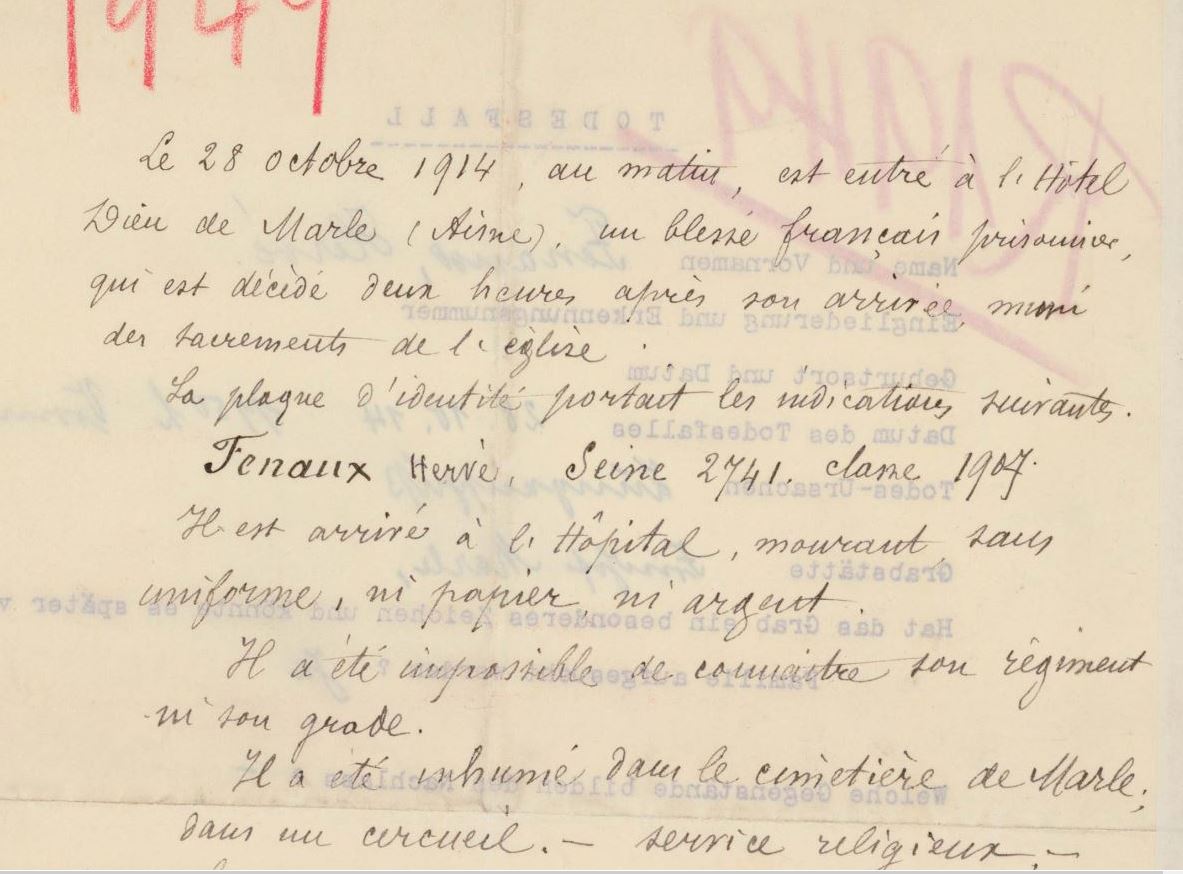 1949
TODESFALL
Le 28 octobre 1914, au matin, est entré à l'Hôtel
Dieu de Marle (Aisne), un blessé français prisonnier,
qui est décédé deux heures après son arrivée, muni
des sacrements de l'église.
La plaque d'identité portait les indications suivantes.
Fenaux Hervé, Seine 2741. classe 1907.
Il est arrivé à l'Hôpital, mourant, sans
uniforme, ni papier, ni argent.
Il a été impossible de connaitre son régiment
ni son grade.
Il a été inhumé dans le cimetière de Marle,
dans un cercueil. — service religieux. —
Name und Vornamen
Eingliederung und Erkennungsnummer
Geburtsort und Datum
Datum des Todesfalles 28.10.14
Todes-Ursachen
Grabstätte
Hat das Grab ein besonderes Zeichen und könnte es später v
Familie
Welche Gegenstände bilden den Nachlass